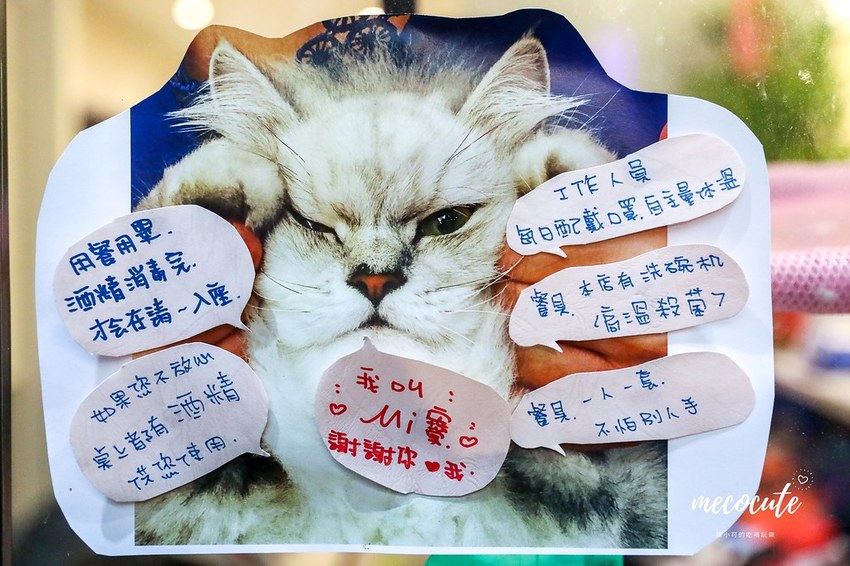 用餐用畢.
酒精消毒完.
才会在請~入座.
如果您不放心
桌上皆有酒精
供您使用.
:我叫:
♡Mi寶.♡
謝謝你♥我.
工作人員
每日配戴口罩.自主量体溫
餐具.本店有洗碗机
高溫殺菌了
餐具.一人一套.
不怕別人手
mecocute